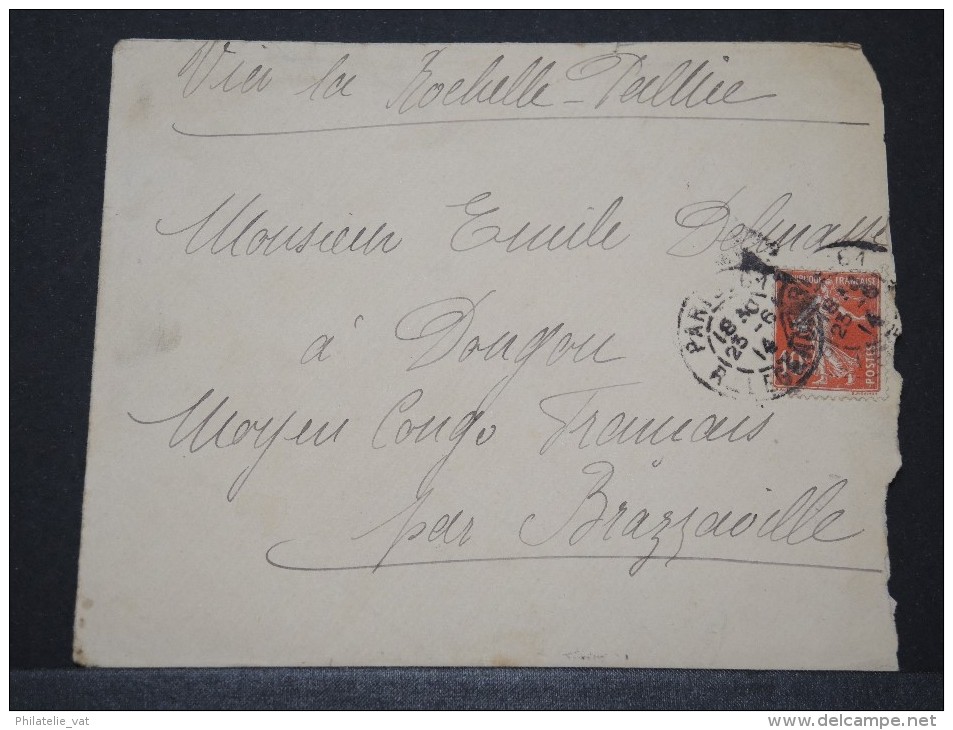 Via la Rochelle-Pallice
Monsieur Emile
à Dongou
Moyen Congo Français
par Brazzaville
PARIS
18 30
25 -6
14
18
25 -6
14
FRANÇAISE
POSTES
Philatelie_vat
www.delcampe.net